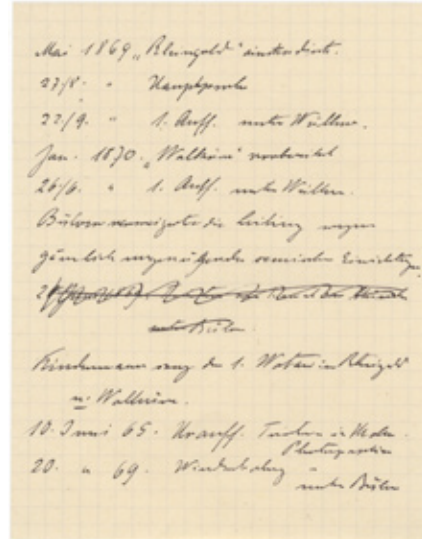 Mai 1869 „Rheingold" einstudiert.
27/8. " Hauptprobe
22/9. " 1. Auff. unter Wüllner.
Jan. 1870. „Walküre" vorbereitet
26/6. " 1. Auff. unter Wüllner.
Bülow verweigerte die Leitung wegen
gänzlich ungenügender scenischer Einrichtungen
unter Bülow
Kindermann sang den 1. Wotan in Rheingold
u. Walküre.
10. Juni 65. Urauff. Tristan in
20. " 69. Wiederholung "
unter Bülow